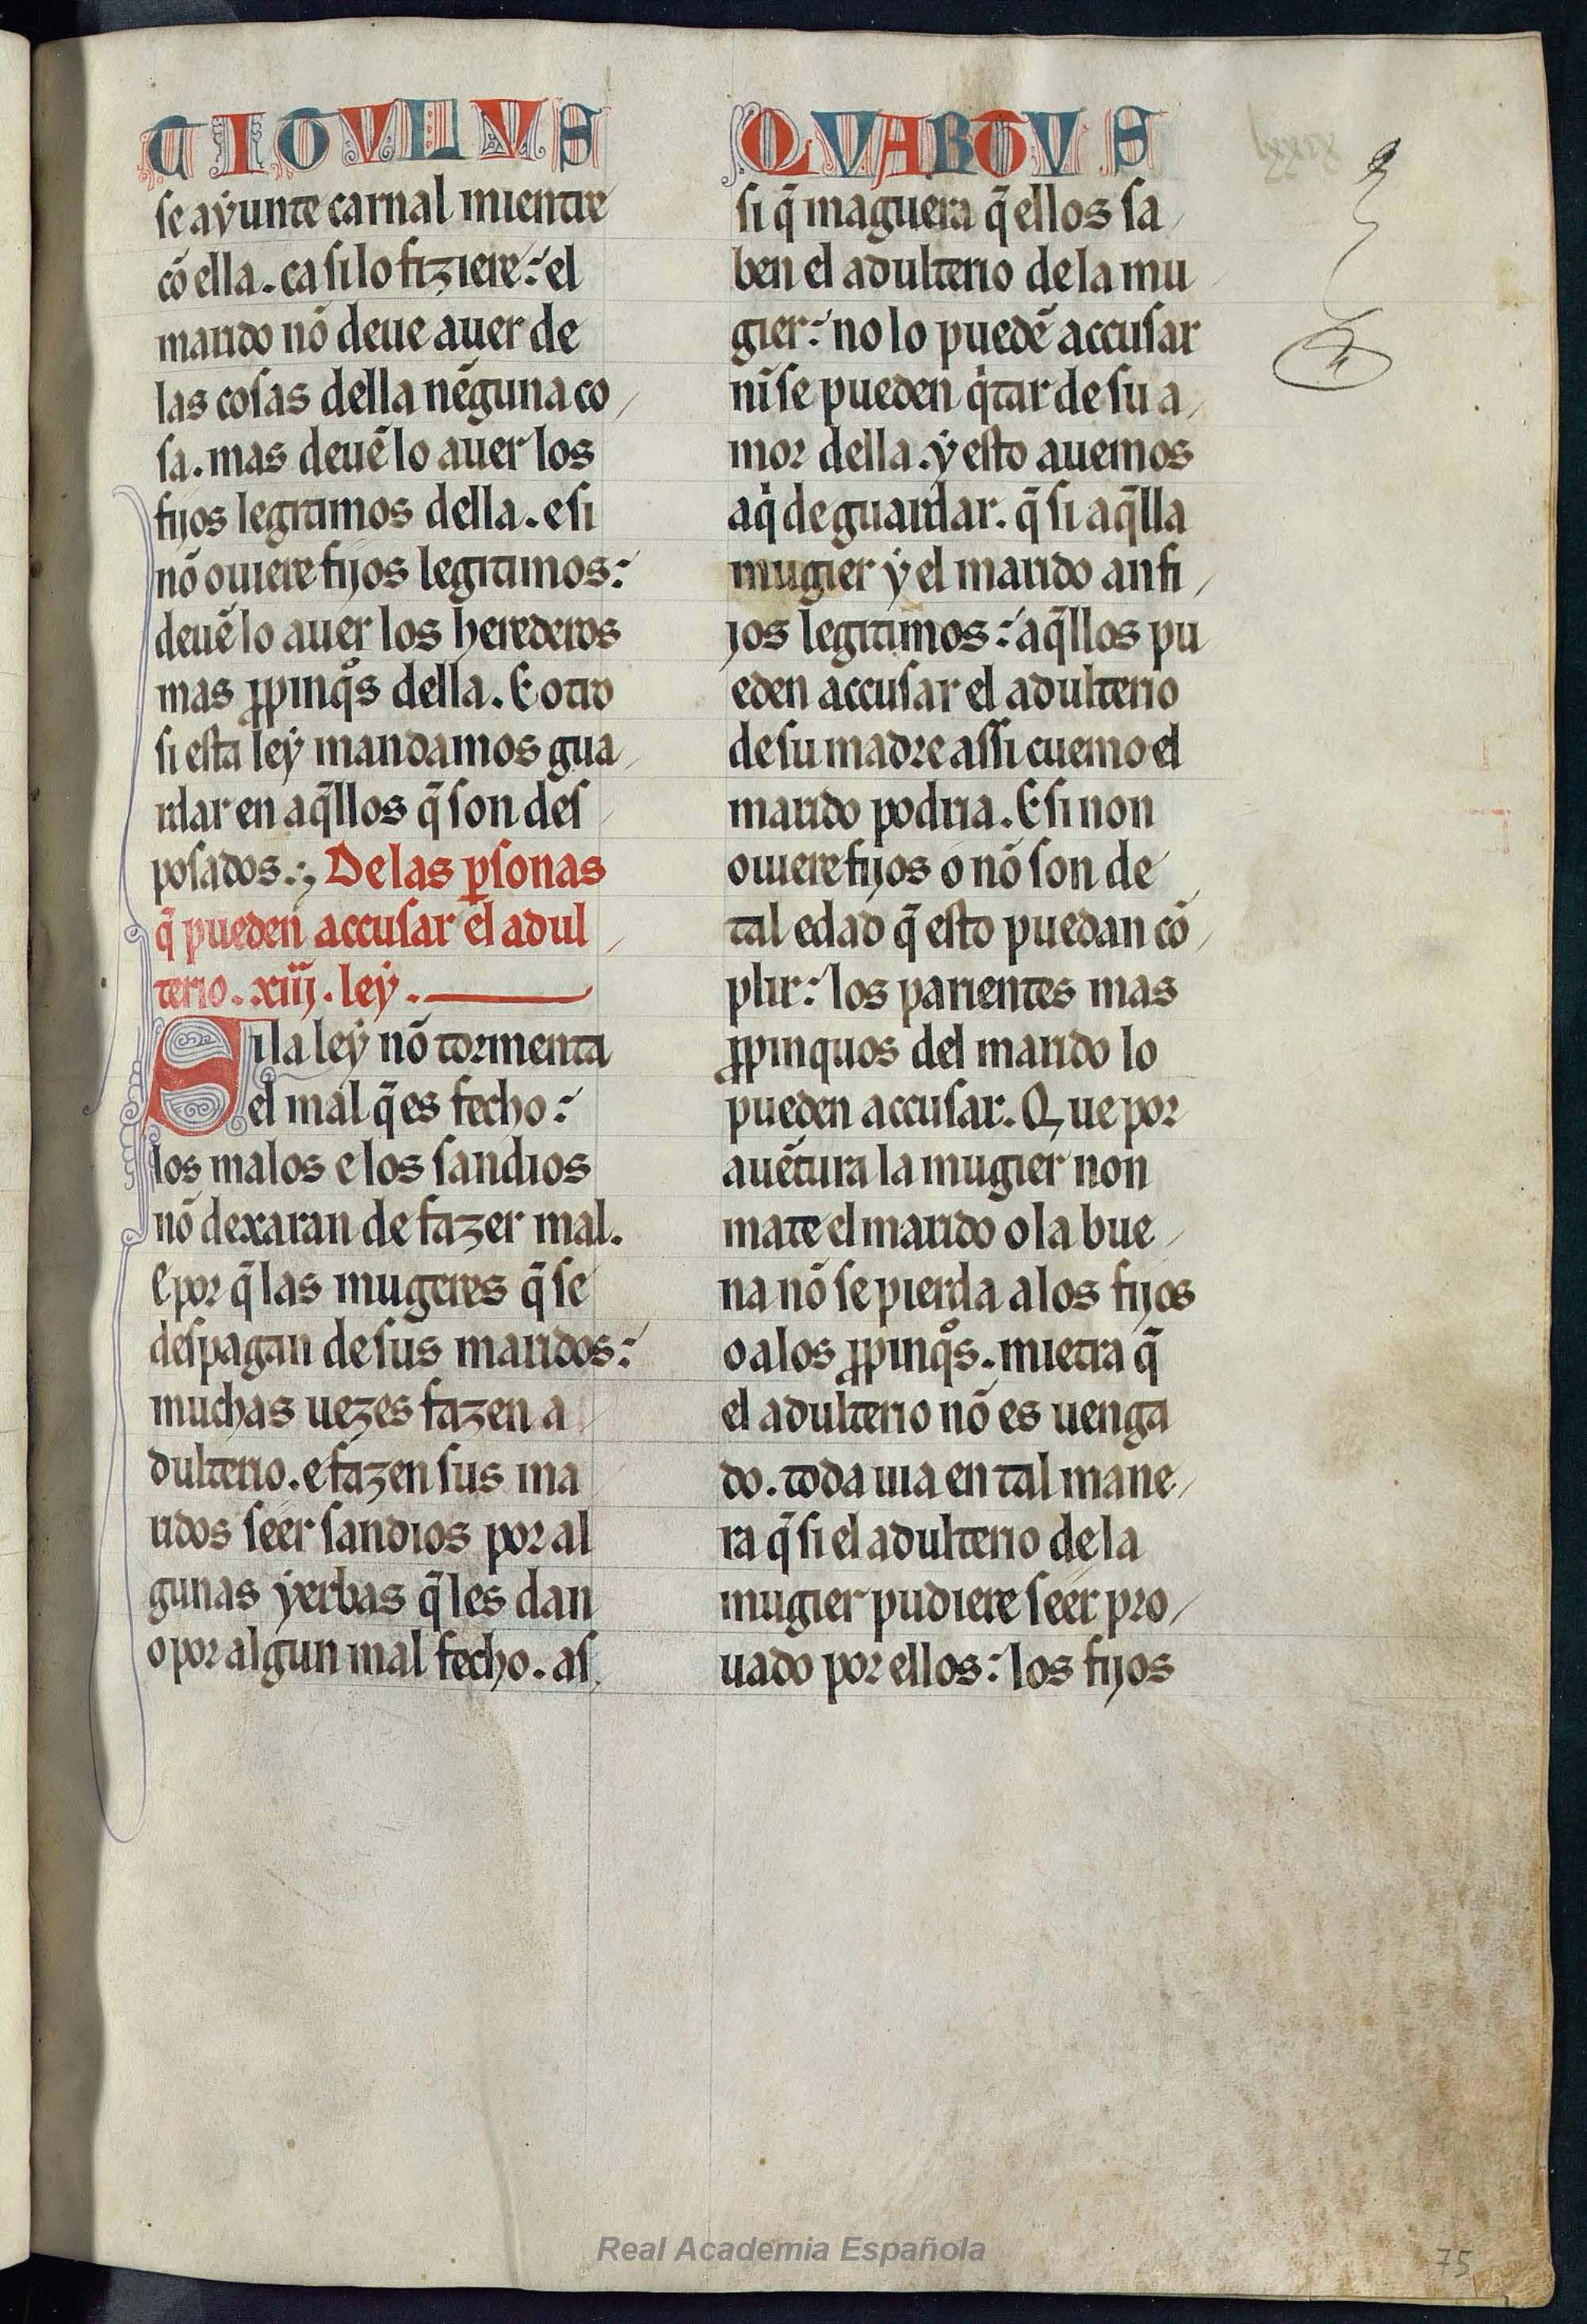 TITVLVS
se aẏunte carnal mientre
cõ ella. ca si lo fiziere: el
marido nõ deue auer de
las cosas della nẽguna co
sa. mas deuẽ lo auer los
fijos legitimos della. e si
nõ ouiere fijos legitimos:
deuẽ lo auer los herederos
mas ꝓpinqͦs della. E otro
si esta leẏ mandamos gua
rdar en aq̃llos q̃ son des
posados. De las ꝑsonas
q̃ pueden accusar el adul
terio. xiij. leẏ.
Si la leẏ nõ tormenta
el mal q̃ es fecho:
los malos e los sandios
nõ dexaran de fazer mal.
E por q̃ las mugeres q̃ se
despagan de sus maridos:
muchas uezes fazen a
dulterio. e fazen sus ma
ridos seer sandios por al
gunas ẏerbas q̃ les dan
o por algun mal fecho. as
QVARTVS
si q̃ maguera q̃ ellos sa
ben el adulterio de la mu
gier: no lo puedẽ accusar
nĩ se pueden qͥtar de su a
mor della. ẏ esto auemos
aqͥ de guardar. q̃ si aq̃lla
mugier ẏ el marido an fi
jos legitimos: aq̃llos pu
eden accusar el adulterio
de su madre assi cuemo el
marido podria. E si non
ouiere fijos o nõ son de
tal edad q̃ esto puedan cõ
plir: los parientes mas
ꝓpinquos del marido lo
pueden accusar. Que por
auẽtura la mugier non
mate el marido o la bue
na nõ se pierda a los fijos
o a los ꝓpinqͦs. mietra q̃
el adulterio nõ es uenga
do. toda uia en tal mane
ra q̃ si el adulterio de la
mugier pudiere seer pro
uado por ellos: los fijos
Real Academia Española
75